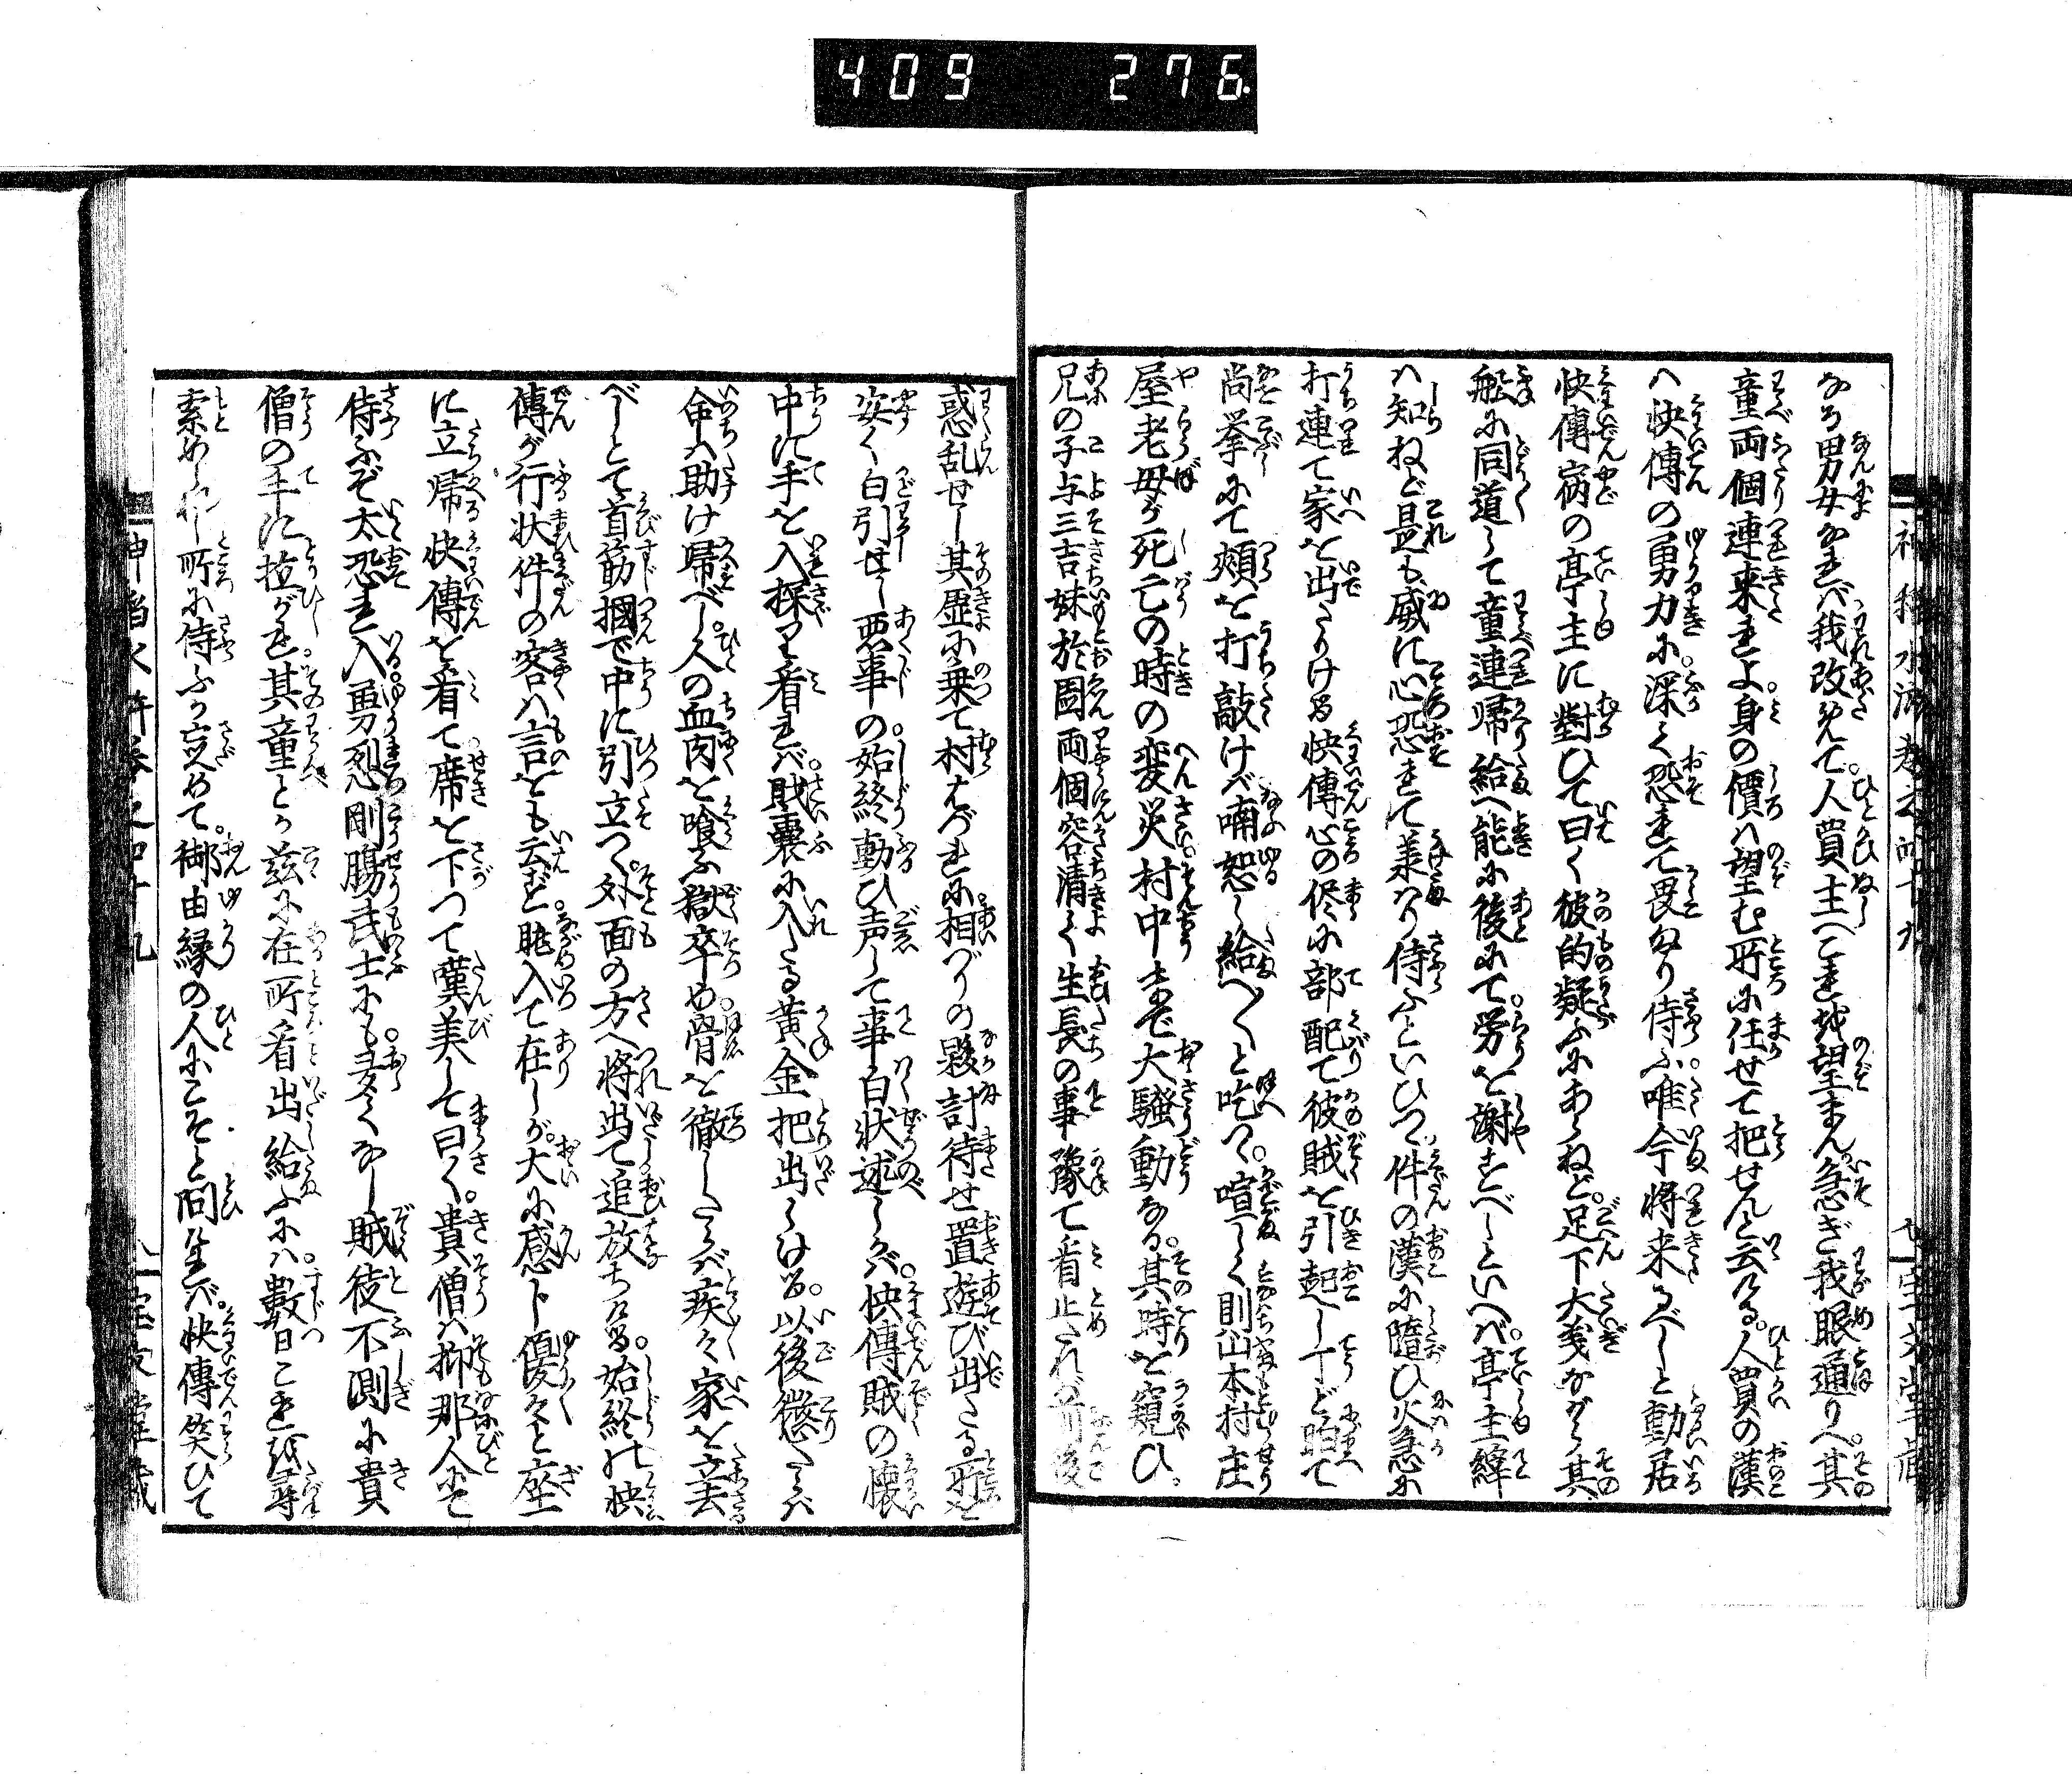 409 276
なる男女なれば我改めて人買主へこれを望まん急ぎ我眼通りへ其
童両個連来れよ身の價は望む所に任せて把せんと云乃る人買の漢
へ快傳の勇力に深く恐れて畏り侍ふ唯今将来るべしと動居
快傳宿の亭主に對ひて曰く彼的疑ふにあらねど足下大義ながら其
船に同道して童連帰給へ能に後にて労を謝すべしといへば亭主縡
ハ知ねど是も威に心恐れて羕り侍ふといひつ件の漢に隨ひ火急に
打連て家を出たりける快傳心の侭に部配て彼賊を引起し丁ど睨て
尚拳にて頬を打敲けバ喃恕し給へ〱と吃つ喧しく則山本村庄
屋老母が死亡の時の変災村中まで大騒動なる其時を窺ひ
兄の子与三吉妹於園両個容清く生長の事豫て看止たれバ前後
惑乱せし其虚に乗て村はづれに相づりの夥計待せ置遊び出たる所を
安く勾引せし悪事の始終動ひ声して事白状述しかバ快傳賊の懐
中に手を入探りて看れバ財嚢に入たる黄金把出しける以後懲たらバ
命ハ助け帰べし人の血肉を喰ふ獄卒め骨を徹したらバ疾々家を立去
べしとて首筋掴で中に引立つ外面の方へ将出て追放ちける始終の快
傳が行状件の客ハ言をも云ず眺入て在しが大に感じ優々と座
に立帰快傳を看て席を下つて嘆美して曰く貴僧ハ抑那人にて
侍ふぞ太恐れ入勇烈剛膓武士にも多くなし賊徒不測に貴
僧の手に拉がれ其童とか茲に在所看出給ふにハ數日これを尋
索めし所に侍ふか定めて御由縁の人にこそと問れバ快傳笑ひて